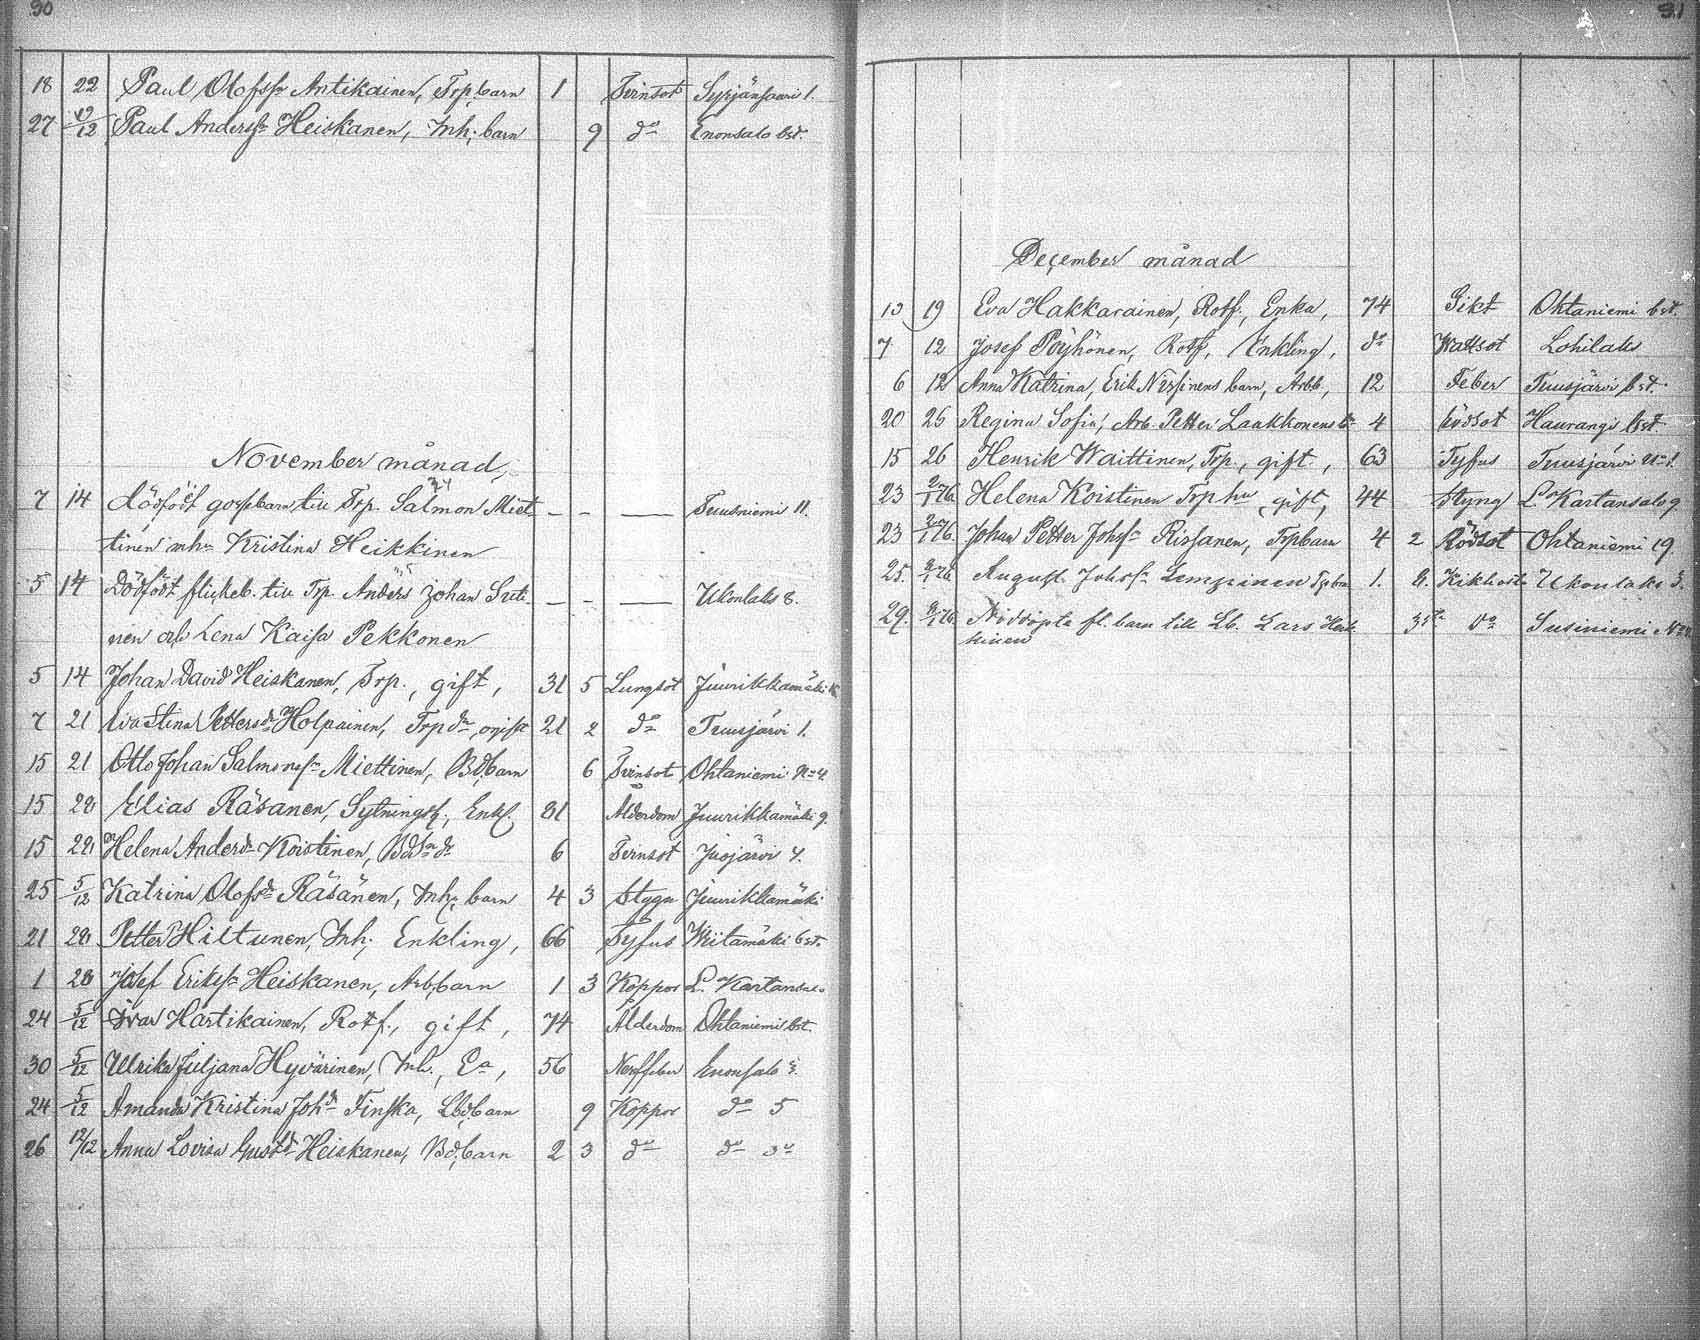 30
18 22 Paul Olofssn Antikainen, Trp. barn 1 Tvinsot Syrjänsaari 1.
27 12/12 Paul Anderssn Heiskanen, Inh. barn 9 do Enonsalo bst.
November månad,
7 14 Dödfödt gossebarn till Trp. Salmon Miet- — — — Tuusniemi 11.
tinen mhu Kristina Heikkinen
5 14 Dödfödt flickeb. till Trp. Anders Johan Suti- — — — Ukonlaks 8.
nen o/h Lena Kaisa Pekkonen
5 14 Johan David Heiskanen, Trp., gift, 31 5 Lungsot Juurikkamäki
7 21 Eva Stina Pettersdr Holpainen, Trpdr, ogift 21 2 do Tuusjärvi 1.
15 21 Otto Johan Salmonssn Miettinen, Bd.barn 6 Tvinsot Ohtaniemi No 4.
15 28 Elias Räsänen, Sytningsk., Enkl. 81 Ålderdom Juurikkamäki 9.
15 28 Helena Andersdr Koistinen, Bdsdr 6 Tvinsot Juojärvi 4.
25 5/12 Katrina Olofsdr Räsänen, Inh. barn 4 3 Stygn Juurikkamäki
21 28 Petter Hiltunen, Inh. Enkling, 66 Tyfus Wiitamäki bst.
1 28 Josef Erikssn Heiskanen, Arb.barn 1 3 Koppor L. Kartansalo
24 5/12 Ivar Hartikainen, Rotf., gift, 74 Ålderdom Ohtaniemi bst.
30 5/12 Ullrika Juljana Hyvärinen, Inh., Ea, 56 Nerffeber Enonsalo 3.
24 5/12 Amanda Kristina Johdr Finska, Lbd.barn 9 Koppor do 5
26 12/12 Anna Lovisa Gustdr Heiskanen, Bd.barn 2 3 do do 3
31
December månad
13 19 Eva Hakkarainen, Rotf., Enka, 74 Gikt Ohtaniemi bst.
7 12 Josef Pöyhönen, Rotf, Enkling, do Wattsot Lohilaks
6 12 Anna Katrina, Erik Nissinens barn, Arbb, 12 Feber Tuusjärvi bst.
20 26 Regina Sofia, Arb. Petter Laakkonens bn 4 Rödsot Haurangi bst.
15 26 Henrik Waittinen, Trp., gift, 63 Tyfus Tuusjärvi No 1.
23 2/1 76. Helena Koistinen Trp hu gift, 44 Styng L. Kartansalo 9.
23 2/1 76. Johan Petter Johssn Rissanen, Trpbarn 4 2 Rödsot Ohtaniemi 19.
25. 2/1 76 August Johssn Lempinen Trpbrn 1. 8. Kikhosta Ukonlaks 3.
29. 9/1 76. Nöddöpta fl. barn till Lb. Lars Heik- do Susiniemi
kinen